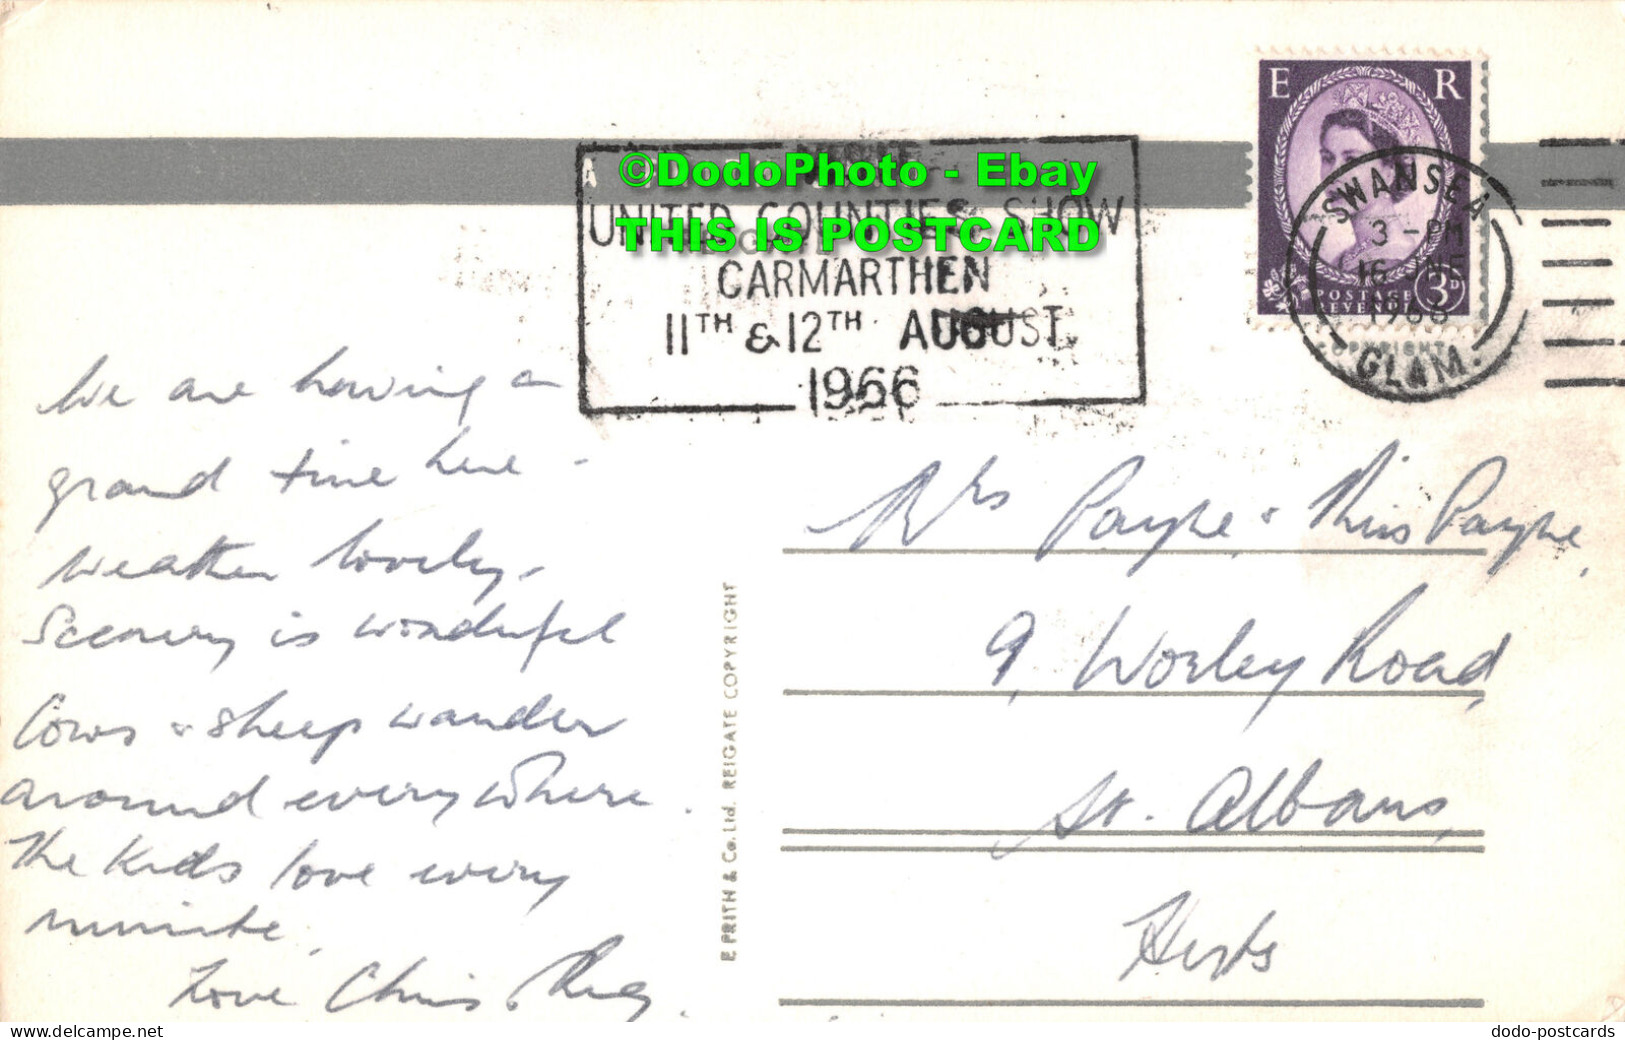 ©DodoPhoto - Ebay
THIS IS POSTCARD
UNITED COUNTIES SHOW
CARMARTHEN
11TH & 12TH AUGUST
1966
E R
POSTAGE
REVENUE
3D
SWANSEA
3 - PM
16 JNE
1966
GLAM.
COPYRIGHT
We are having a
grand time here -
weather lovely -
Scenery is wonderful
Cows & sheep wander
around everywhere.
The kids love every
minute.
Love Chris &
F FRITH & Co. Ltd. REIGATE COPYRIGHT
Mrs Payne & Miss Payne,
9, Worley Road,
St. Albans,
Herts
dodo-postcards